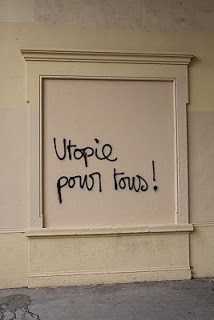 Utopie
pour tous !